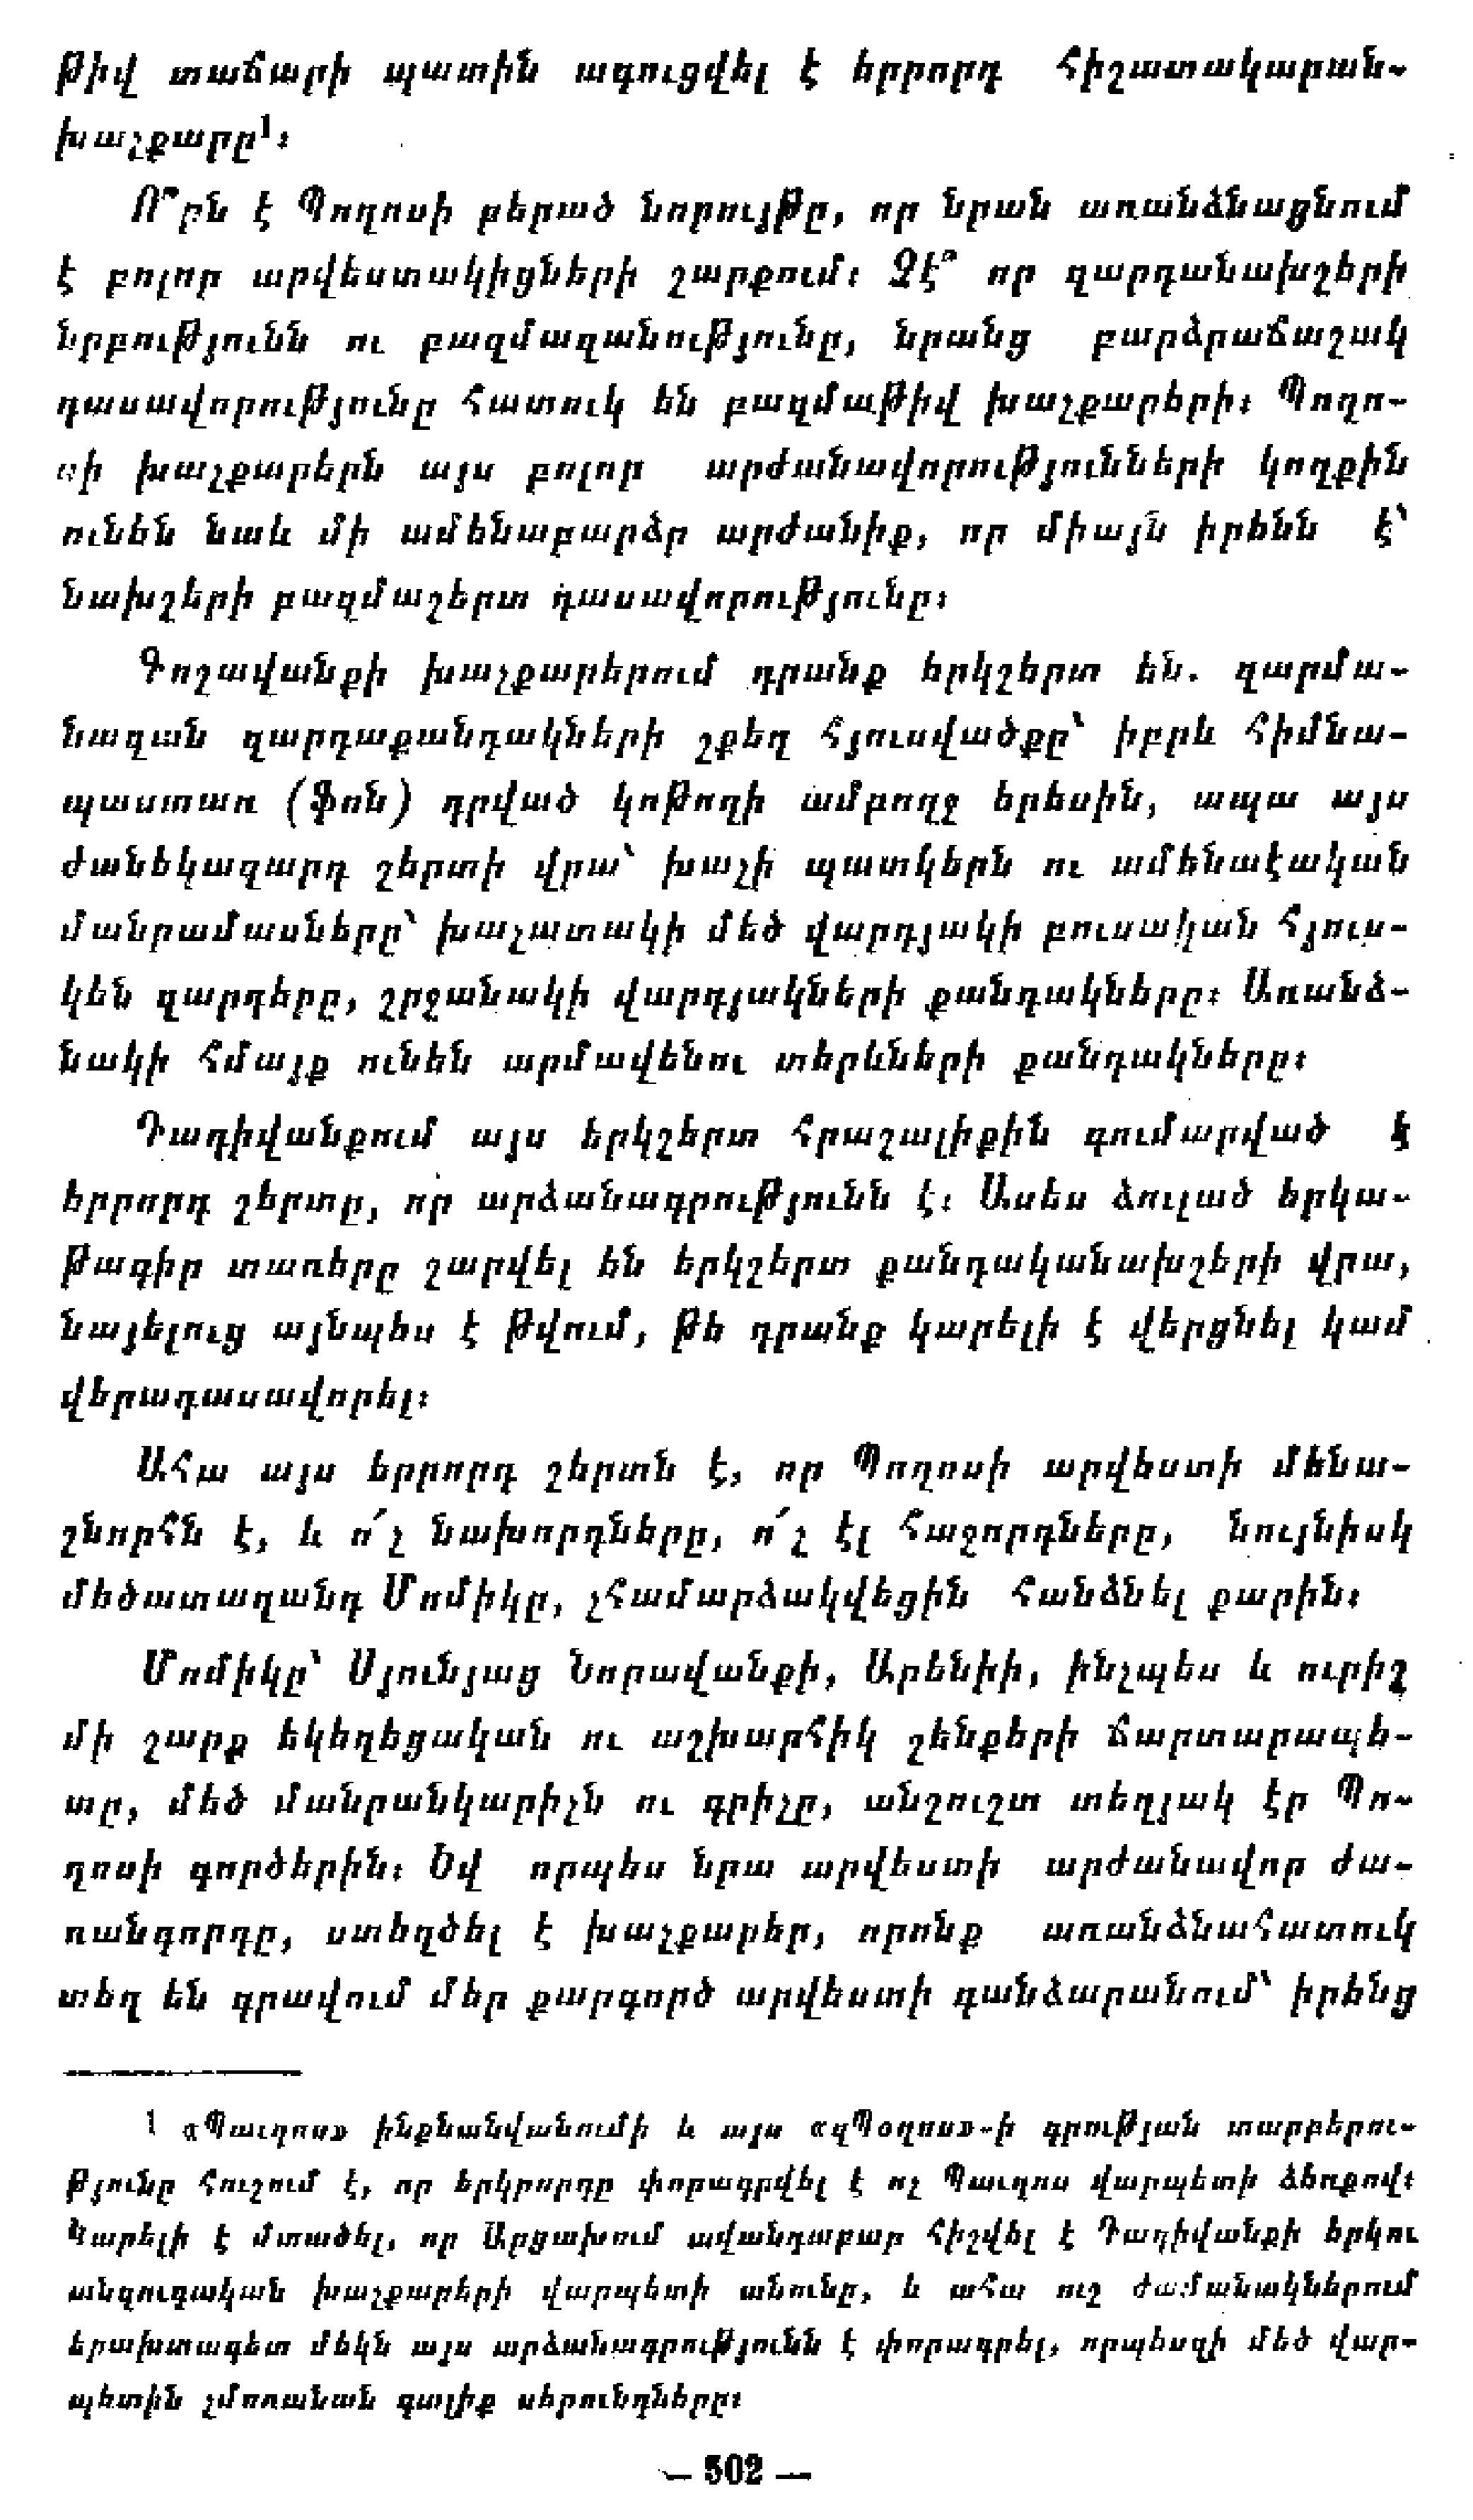 թիվ տաճարի պատին ագուցվել է երրորդ հիշատակարան-
խաչքարը¹։
Ո՞րն է Պողոսի բերած նորույթը, որ նրան առանձնացնում
է բոլոր արվեստակիցների շարքում։ Չէ՞ որ զարդանախշերի
նրբությունն ու բազմազանությունը, նրանց բարձրաճաշակ
դասավորությունը հատուկ են բազմաթիվ խաչքարերի։ Պողո-
սի խաչքարերն այս բոլոր արժանավորությունների կողքին
ունեն նաև մի ամենաբարձր արժանիք, որ միայն իրենն է՝
նախշերի բազմաշերտ դասավորությունը։
Գոշավանքի խաչքարերում դրանք երկշերտ են. զարմա-
նազան զարդաքանդակների շքեղ հյուսվածքը՝ իբրև հիմնա-
պաստառ (ֆոն) դրված կոթողի ամբողջ երեսին, ապա այս
ժանեկազարդ շերտի վրա՝ խաչի պատկերն ու ամենաէական
մանրամասները՝ խաչատակի մեծ վարդյակի բուսական հյուս-
կեն զարդերը, շրջանակի վարդյակների քանդակները։ Առանձ-
նակի հմայք ունեն արմավենու տերևների քանդակները։
Դադիվանքում այս երկշերտ հրաշալիքին գումարված է
երրորդ շերտը, որ արձանագրությունն է։ Ասես ձուլած երկա-
թագիր տառերը շարվել են երկշերտ քանդականախշերի վրա,
նայելուց այնպես է թվում, թե դրանք կարելի է վերցնել կամ
վերադասավորել։
Ահա այս երրորդ շերտն է, որ Պողոսի արվեստի մենա-
շնորհն է, և ո՛չ նախորդները, ո՛չ էլ հաջորդները, նույնիսկ
մեծատաղանդ Մոմիկը, չհամարձակվեցին հանձնել քարին։
Մոմիկը՝ Սյունյաց Նորավանքի, Արենիի, ինչպես և ուրիշ
մի շարք եկեղեցական ու աշխարհիկ շենքերի ճարտարապե-
տը, մեծ մանրանկարիչն ու գրիչը, անշուշտ տեղյակ էր Պո-
ղոսի գործերին։ Եվ որպես նրա արվեստի արժանավոր ժա-
ռանգորդը, ստեղծել է խաչքարեր, որոնք առանձնահատուկ
տեղ են գրավում մեր քարգործ արվեստի գանձարանում՝ իրենց
¹ «Պաւղոս» ինքնանվանումի և այս «զՊօղոս»-ի գրության տարբերու-
թյունը հուշում է, որ երկրորդը փորագրվել է ոչ Պաւղոս վարպետի ձեռքով։
Կարելի է մտածել, որ Արցախում ավանդաբար հիշվել է Դադիվանքի երկու
անզուգական խաչքարերի վարպետի անունը, և ահա ուշ ժամանակներում
երախտագետ մեկն այս արձանագրությունն է փորագրել, որպեսզի մեծ վար-
պետին չմոռանան գալիք սերունդները։
— 502 —